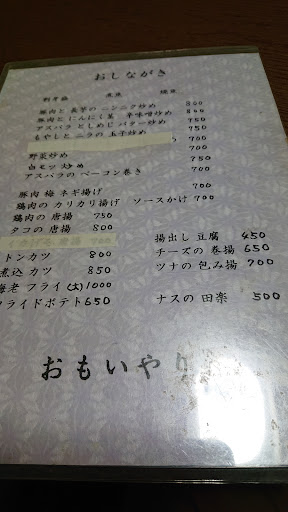 おしながき
豚肉と 長芋の ニンニク炒め 800
豚肉と にんにく茎 辛味噌炒め 800
アスパラ としめじ バター炒め 750
もやしと ニラの 玉子炒め 750
野菜炒め 700
白モツ 炒め 750
アスパラの ベーコン巻き 700
豚肉 梅 ネギ揚げ 700
鶏肉の カリカリ揚げ ソースかけ 700
鶏肉の 唐揚 750
タコの 唐揚 800
トンカツ 800
煮込 カツ 850
海老 フライ (大)1000
フライドポテト 650
揚出し 豆腐 450
チーズの 巻揚 650
ツナの 包み揚 700
ナスの 田楽 500
おもいやり